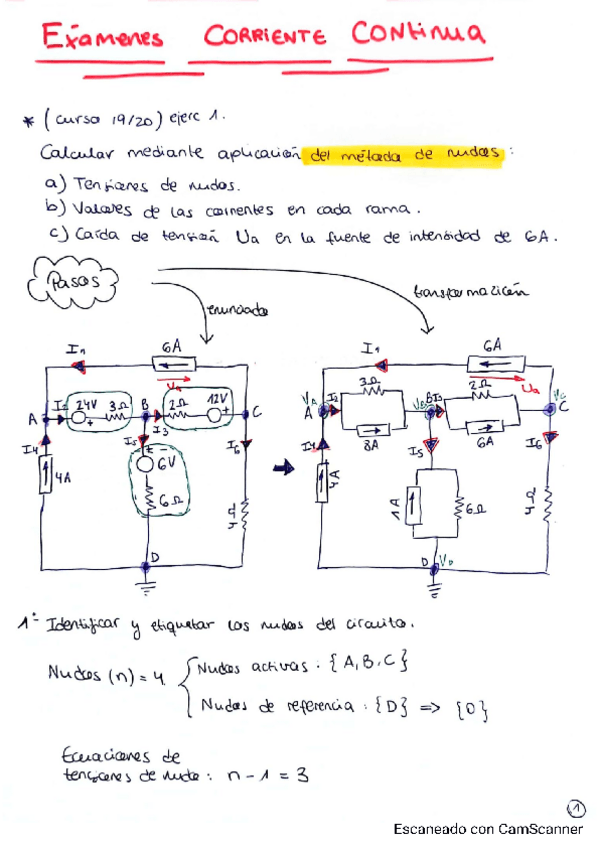 Exámenes CORRIENTE CONTINUA
* (curso 19/20) ejerc 1.
Calcular mediante aplicación del método de nudos :
a) Tensiones de nudos.
b) Valores de las corrientes en cada rama.
c) Caída de tensión Ua en la fuente de intensidad de 6A.
Pasos
enunciado
transformación
I1
6A
Ua
A
I2
24V
3Ω
B
2Ω
12V
C
I3
I4
I5
I6
4A
6V
6Ω
D
I1
6A
Ua
VA
A
I2
3Ω
8A
VB
B
I3
2Ω
6A
VC
C
I4
I5
I6
4A
1A
6Ω
D
VD
1º- Identificar y etiquetar los nudos del circuito.
Nudos (n) = 4
Nudos activos : {A, B, C}
Nudos de referencia : {D} => {0}
Ecuaciones de
tensiones de nudo : n - 1 = 3
1
Escaneado con CamScanner